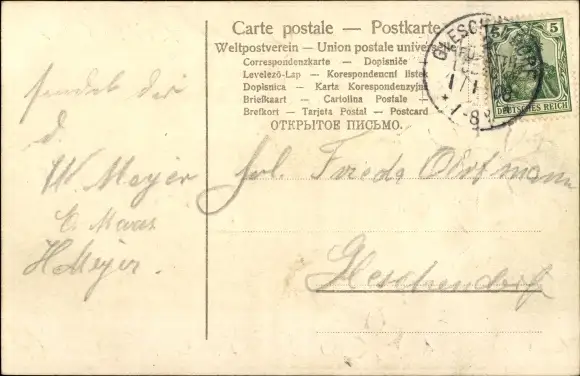 Carte postale — Postkarte
Weltpostverein — Union postale univer
Correspondenzkarte — Dopisniče
Levelező-Lap — Korespondencni listek
Dopisnica — Karta Korespondenzyjn
Briefkaart — Cartolina Postale
Brefkort — Tarjeta Postal — Postcard
ОТКРЫТОЕ ПИСЬМО.
GLESCHENDORF
1 1 08
5 5
DEUTSCHES REICH
sendet dir
W. Meyer
E. Maas
H Meyer.
Frl. Frieda Ohlmann
Gleschendorf